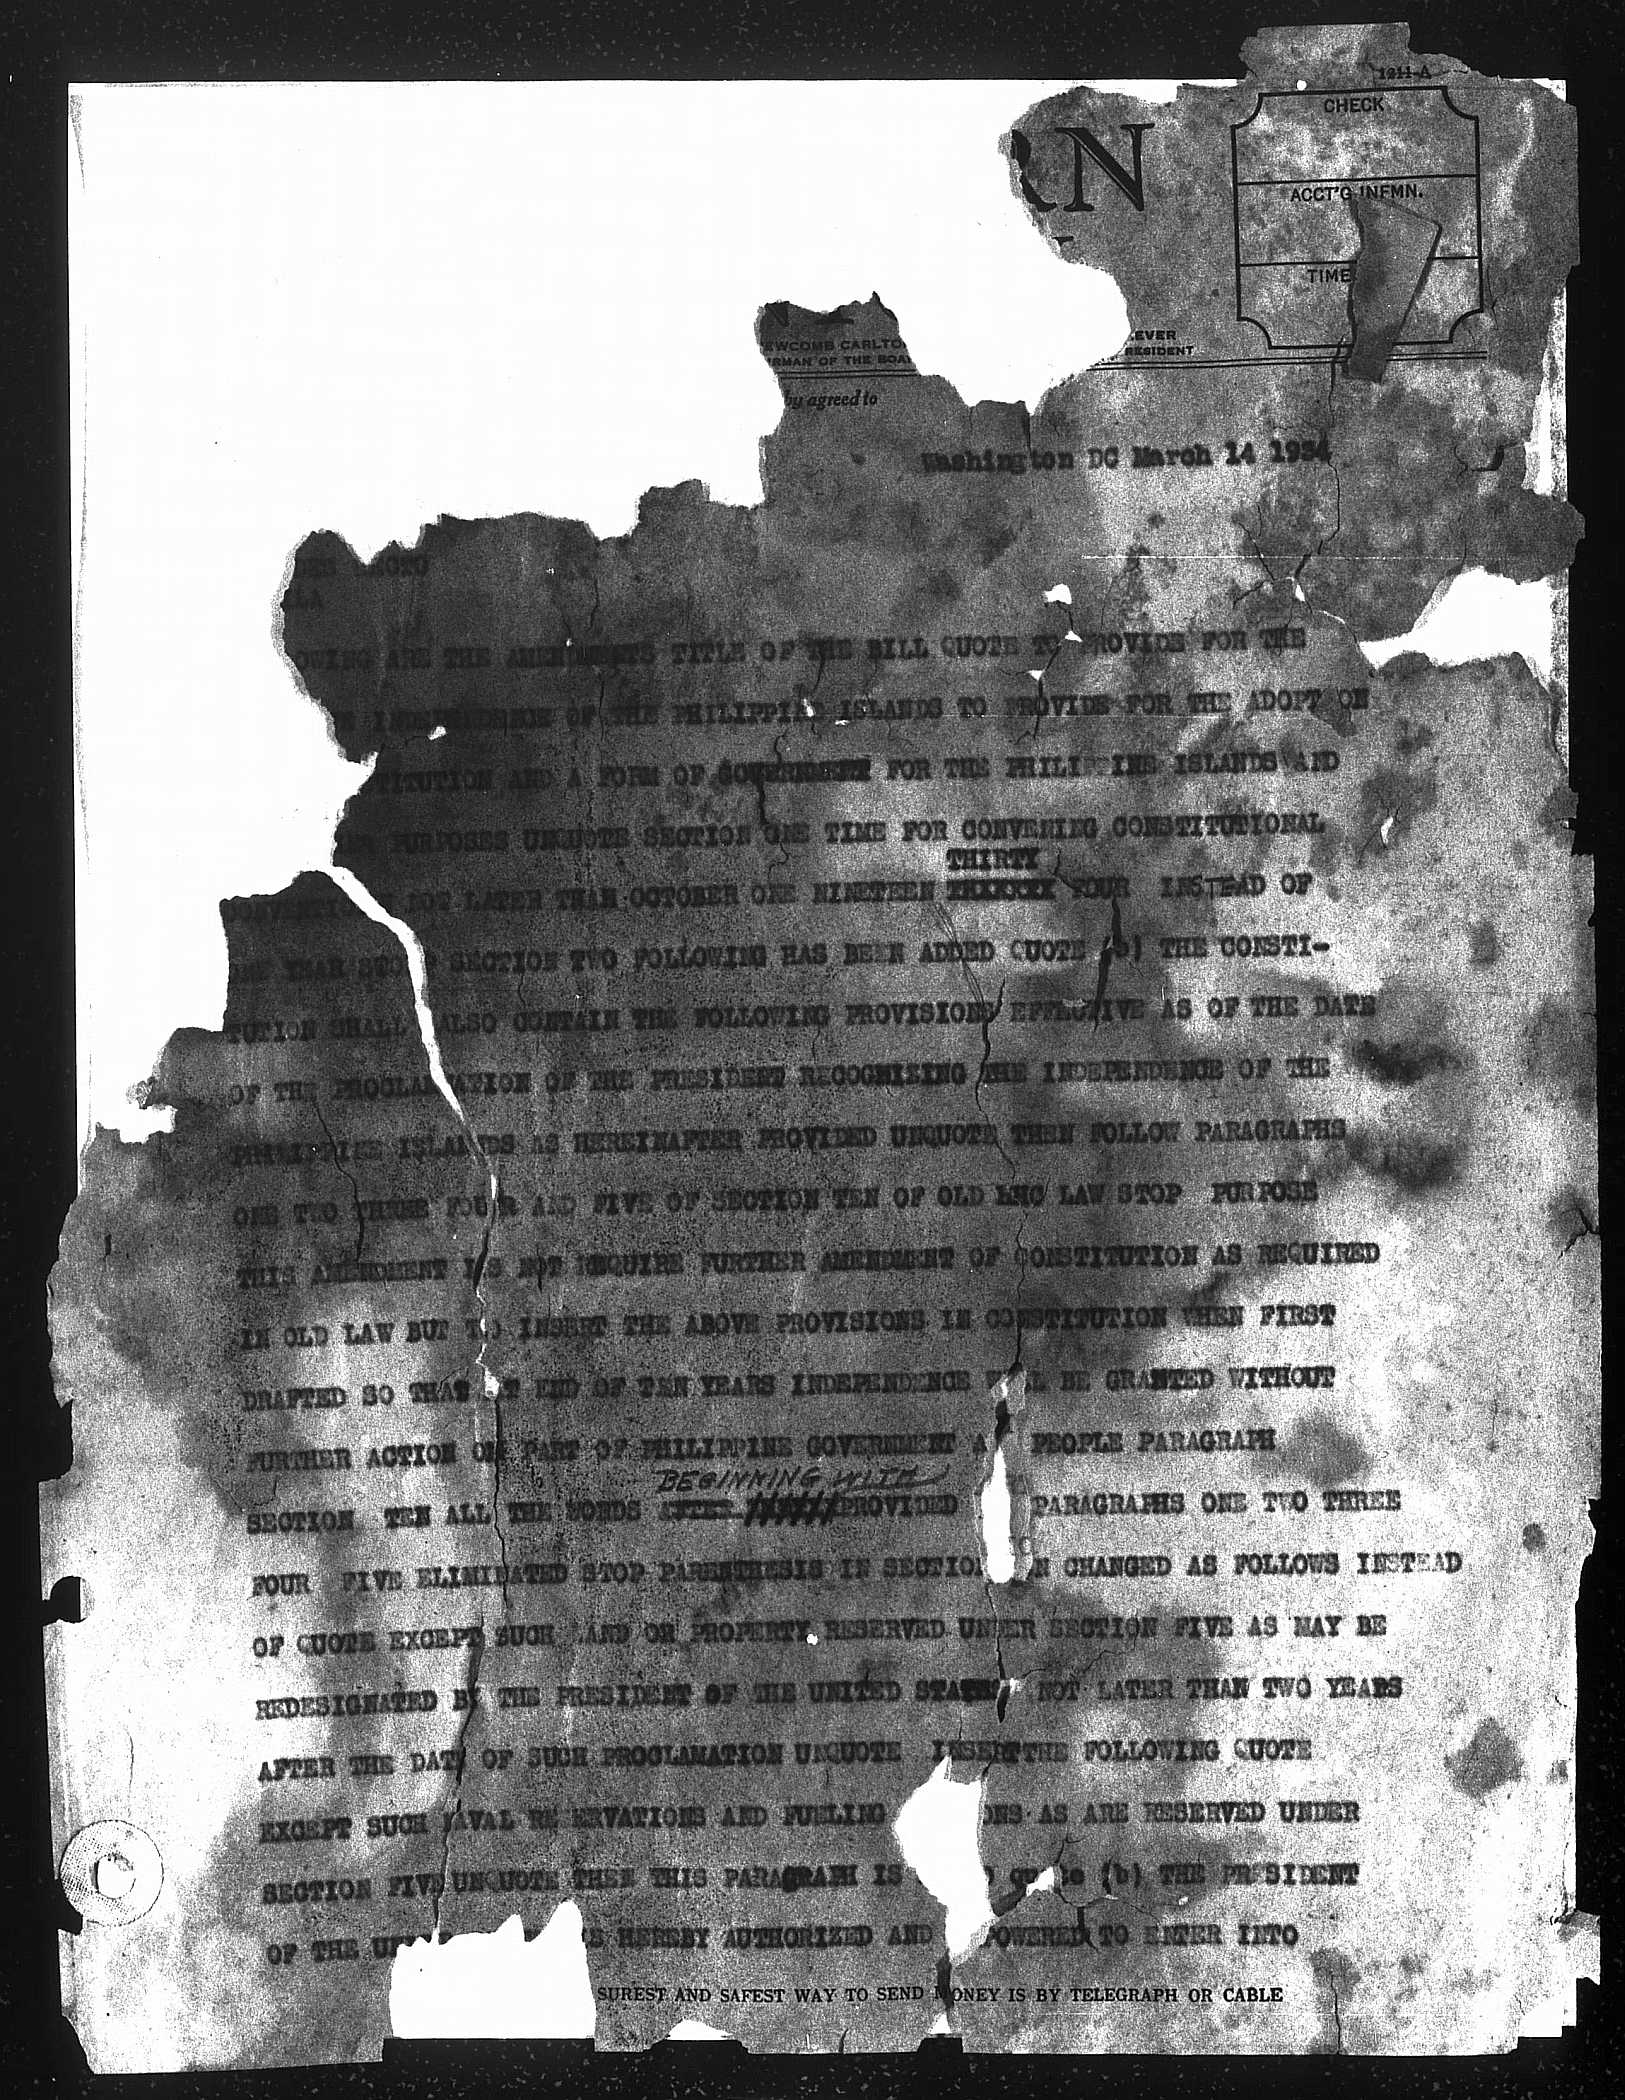 1211-A
CHECK
RN
ACCT'G INFMN.
TIME
EWCOMB CARLTO
RMAN OF THE BOA
EVER
RESIDENT
by agreed to
Washington DC March 14 1934
LA
OWING ARE THE AMENDMENTS TITLE OF THE BILL QUOTE TO PROVIDE FOR THE
INDEPENDENCE OF THE PHILIPPINE ISLANDS TO PROVIDE FOR THE ADOPT ON
TITUTION AND A FORM OF GOVERNMENT FOR THE PHILIPPINE ISLANDS AND
ER PURPOSES UNQUOTE SECTION ONE TIME FOR CONVENING CONSTITUTIONAL
THIRTY
CONVENTION NOT LATER THAN OCTOBER ONE NINETEEN FOUR INSTEAD OF
ONE YEAR STOP SECTION TWO FOLLOWING HAS BEEN ADDED QUOTE (b) THE CONSTI-
TUTION SHALL ALSO CONTAIN THE FOLLOWING PROVISIONS EFFECTIVE AS OF THE DATE
OF THE PROCLAMATION OF THE PRESIDENT RECOGNIZING THE INDEPENDENCE OF THE
PHILIPPINE ISLANDS AS HEREINAFTER PROVIDED UNQUOTE THEN FOLLOW PARAGRAPHS
ONE TWO THREE FOUR AND FIVE OF SECTION TEN OF OLD HHC LAW STOP PURPOSE
THIS AMENDMENT IS NOT REQUIRE FURTHER AMENDMENT OF CONSTITUTION AS REQUIRED
IN OLD LAW BUT TO INSERT THE ABOVE PROVISIONS IN CONSTITUTION WHEN FIRST
DRAFTED SO THAT AT END OF TEN YEARS INDEPENDENCE WILL BE GRANTED WITHOUT
FURTHER ACTION ON PART OF PHILIPPINE GOVERNMENT A PEOPLE PARAGRAPH
BEGINNING WITH
SECTION TEN ALL THE WORDS PROVIDED PARAGRAPHS ONE TWO THREE
FOUR FIVE ELIMINATED STOP PARENTHESIS IN SECTION N CHANGED AS FOLLOWS INSTEAD
OF QUOTE EXCEPT SUCH LAND OR PROPERTY RESERVED UNDER SECTION FIVE AS MAY BE
REDESIGNATED BY THE PRESIDENT OF THE UNITED STATES NOT LATER THAN TWO YEARS
AFTER THE DATE OF SUCH PROCLAMATION UNQUOTE INSERT THE FOLLOWING QUOTE
EXCEPT SUCH NAVAL RE ERVATIONS AND FUELING ONS AS ARE RESERVED UNDER
SECTION FIVE UNQUOTE THEN THIS PARAGRAPH IS quote (b) THE PRESIDENT
OF THE UN S HEREBY AUTHORIZED AND POWERED TO ENTER INTO
SUREST AND SAFEST WAY TO SEND MONEY IS BY TELEGRAPH OR CABLE